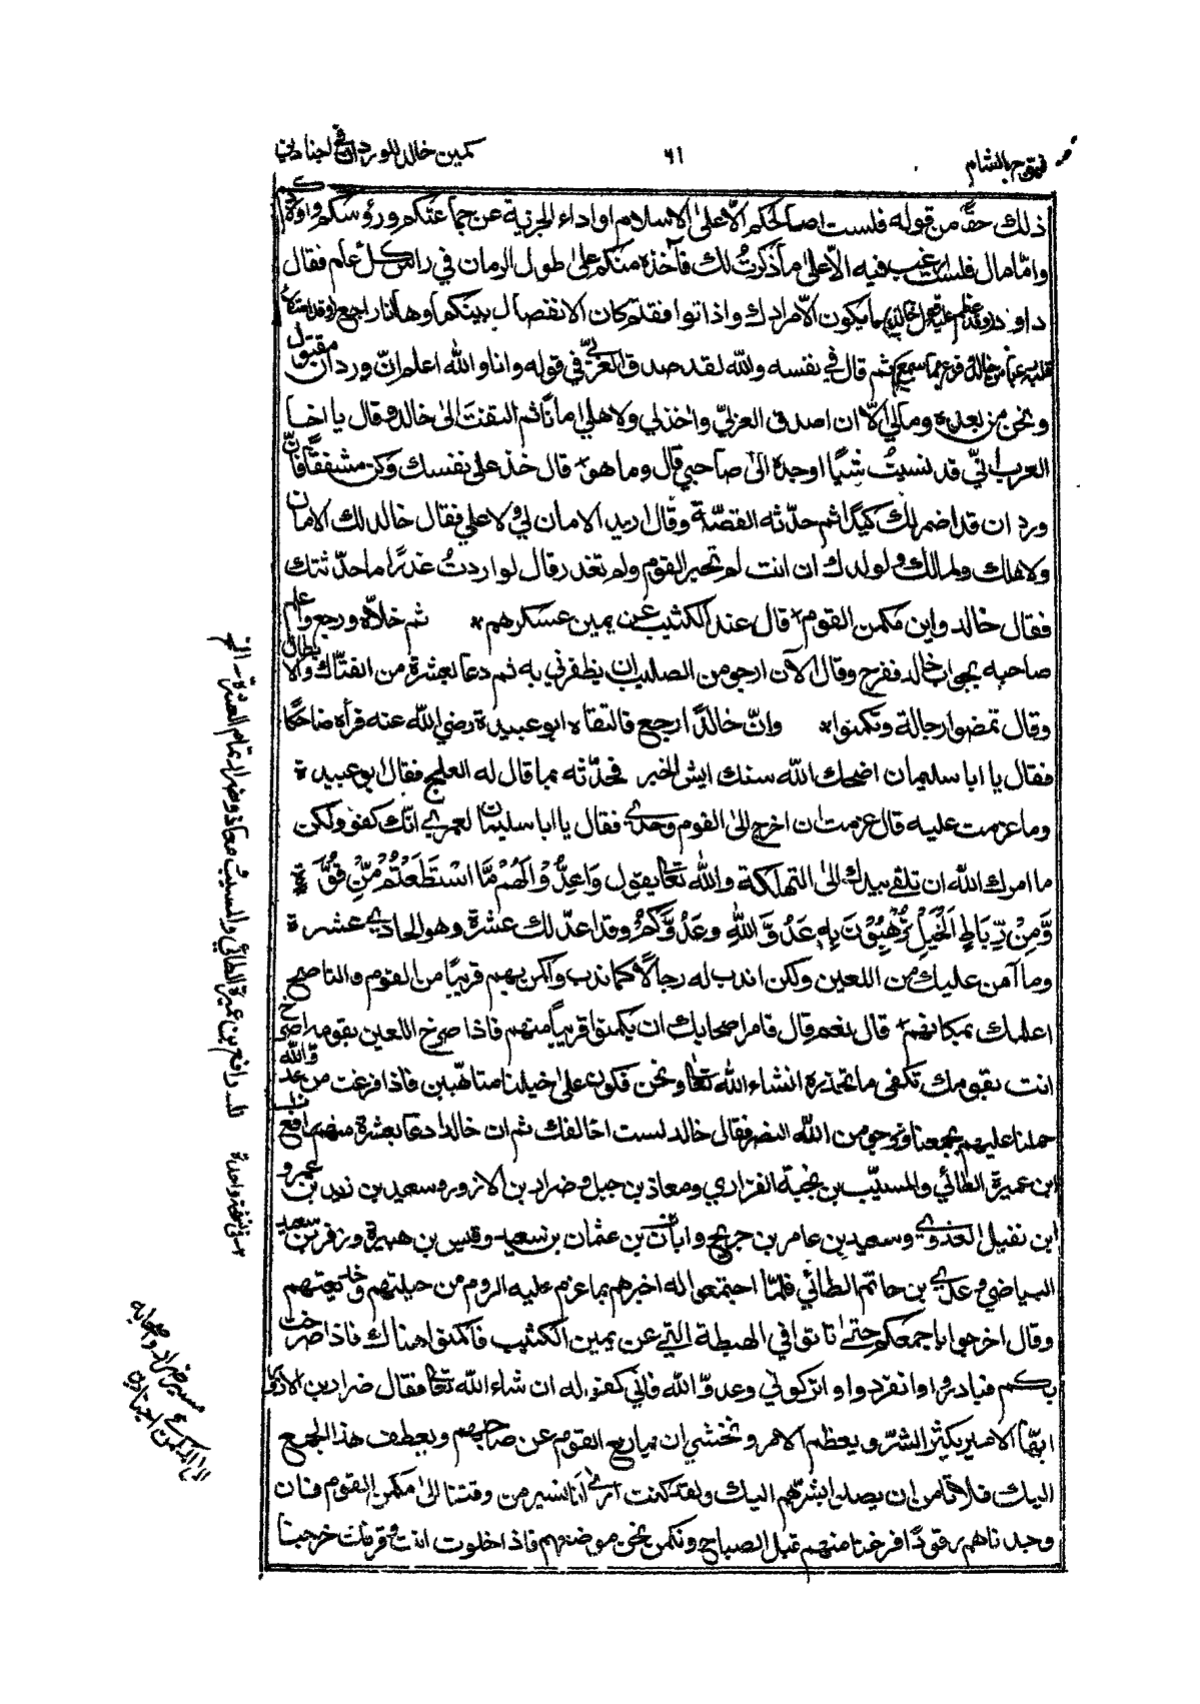 فتوح الشام
٦١
كمين خالد للوردان في اجنادين
ذلك حقا من قوله فلست اصالحكم الّا على الاسلام او اداء الجزية عن جماعتكم ورؤسكم واولادكم
وامّا مال فلست ارغب فيه الّا على ما ذكرتُ لك فآخذه منكم على طول الزمان في راس كل عام فقال
داود وقد عظم عليه قول خالد ما يكون الّا مرادك واذا توافقتم كان الانفصال بينكما وها انا راجع وقد امتلأ
قلبه من خالد فزعا مما سمع ثم قال في نفسه والله لقد صدق العربيّ في قوله وانا والله اعلم انّ وردان مقتول
ونحن من بعده ومالي الّا ان اصدق العربيّ واخذ لي ولاهلي امانًا ثم التفت الى خالد وقال يا اخا
العرب انّي قد نسيتُ شيًا اوجه الى صاحبي قال وما هو قال خذ على نفسك وكن مشفقًا فانّ
وردان قد اضمر لك كيدًا ثم حدّثه القصّة وقال اريد الامان لي ولاهلي فقال خالد لك الامان
ولاهلك ولمالك ولولدك ان انت لم تخبر القوم ولم تغدر قال لو اردتُ غدرًا ما حدّثتك
فقال خالد واين مكمن القوم قال عند الكثيب عن يمين عسكرهم * ثم خلّاه ورجع واعلم
صاحبه بجواب خالد ففرح وقال الآن ارجو من الصليب ان يظفرني به ثم دعا بعشرة من الفتّاك والابطال
وقال تمضوا رجالة وتكمنوا * وانّ خالدًا رجع فالتقاه ابو عبيدة رضي الله عنه فرآه ضاحكا
فقال يا ابا سليمان اضحك الله سنك ايش الخبر فحدّثه بما قال له العلج فقال ابو عبيدة
وما عزمت عليه قال عزمت ان اخرج الى القوم وحدي فقال يا ابا سليمان لعمري انّك كفؤ ولكن
ما امرك الله ان تلقي بيدك الى التهلكة والله تعالى يقول وَاَعِدُّوْا لَهُمْ مَّا اسْتَطَعْتُمْ مِّنْ قُوَّةٍ
وَّمِنْ رِّبَاطِ الْخَيْلِ تُرْهِبُوْنَ بِهٖ عَدُوَّ اللهِ وعَدُوَّكُمْ وقد اعدّ لك عشرة وهو الحادي عشرة
وما آمن عليك من اللعين ولكن اندب له رجالًا كما ندب واكمن بهم قريبًا من القوم والناصح
اعلمك بمكانهم قال نعم قال فامر اصحابك ان يكمنوا قريبًا منهم فاذا صرخ اللعين بقومه اصرخ
انت بقومك تكفى ما تحذره انشاء الله تعالى ونحن نكون على خيلنا متاهّبين فاذا فرغت من عدوّ الله
حملنا عليهم بجمعنا ونرجو من الله النصر فقال خالد لست اخالفك ثم ان خالدا دعا بعشرة منهم رافع
ابن عميرة الطائي والمسيّب بن نجية الفزاري ومعاذ بن جبل وضرار بن الازور وسعيد بن زيد بن عمرو
ابن نفيل العدوي وسعيد بن عامر بن جريج وابان بن عثمان بن سعيد وقيس بن هبيرة وزفر بن سعيد
البياضي وعدي بن حاتم الطائي فلمّا اجتمعوا له اخبرهم بما عزم عليه الروم من حيلتهم وخديعتهم
وقال اخرجوا باجمعكم حتى تاتوا في الهبطة التي عن يمين الكثيب فاكمنوا هناك فاذا صرخت
بكم فبادروا وانفردوا واتركوني وعدوّ الله فاني كفؤ له ان شاء الله تعالى فقال ضرار بن الازور
ايّها الامير يكثر الشرّ ويعظم الامر ونخشى ان يمانع القوم عن صاحبهم ويعطف هذا الجمع
اليك فلا نامن ان يصل شرّهم اليك ولقد كنت ارى انا نسير من وقتنا الى مكمن القوم فان
وجدناهم رقودًا فرغنا منهم قبل الصباح ونكمن نحن موضعهم فاذا خلوت انت وقرنك خرجنا
رافع بن عميرة الطائي والمسيب ومعاذ وضرار تمام العشرة
في نسخة واحدة
مسير ضرار واصحابه
الى المكمن اجنادين